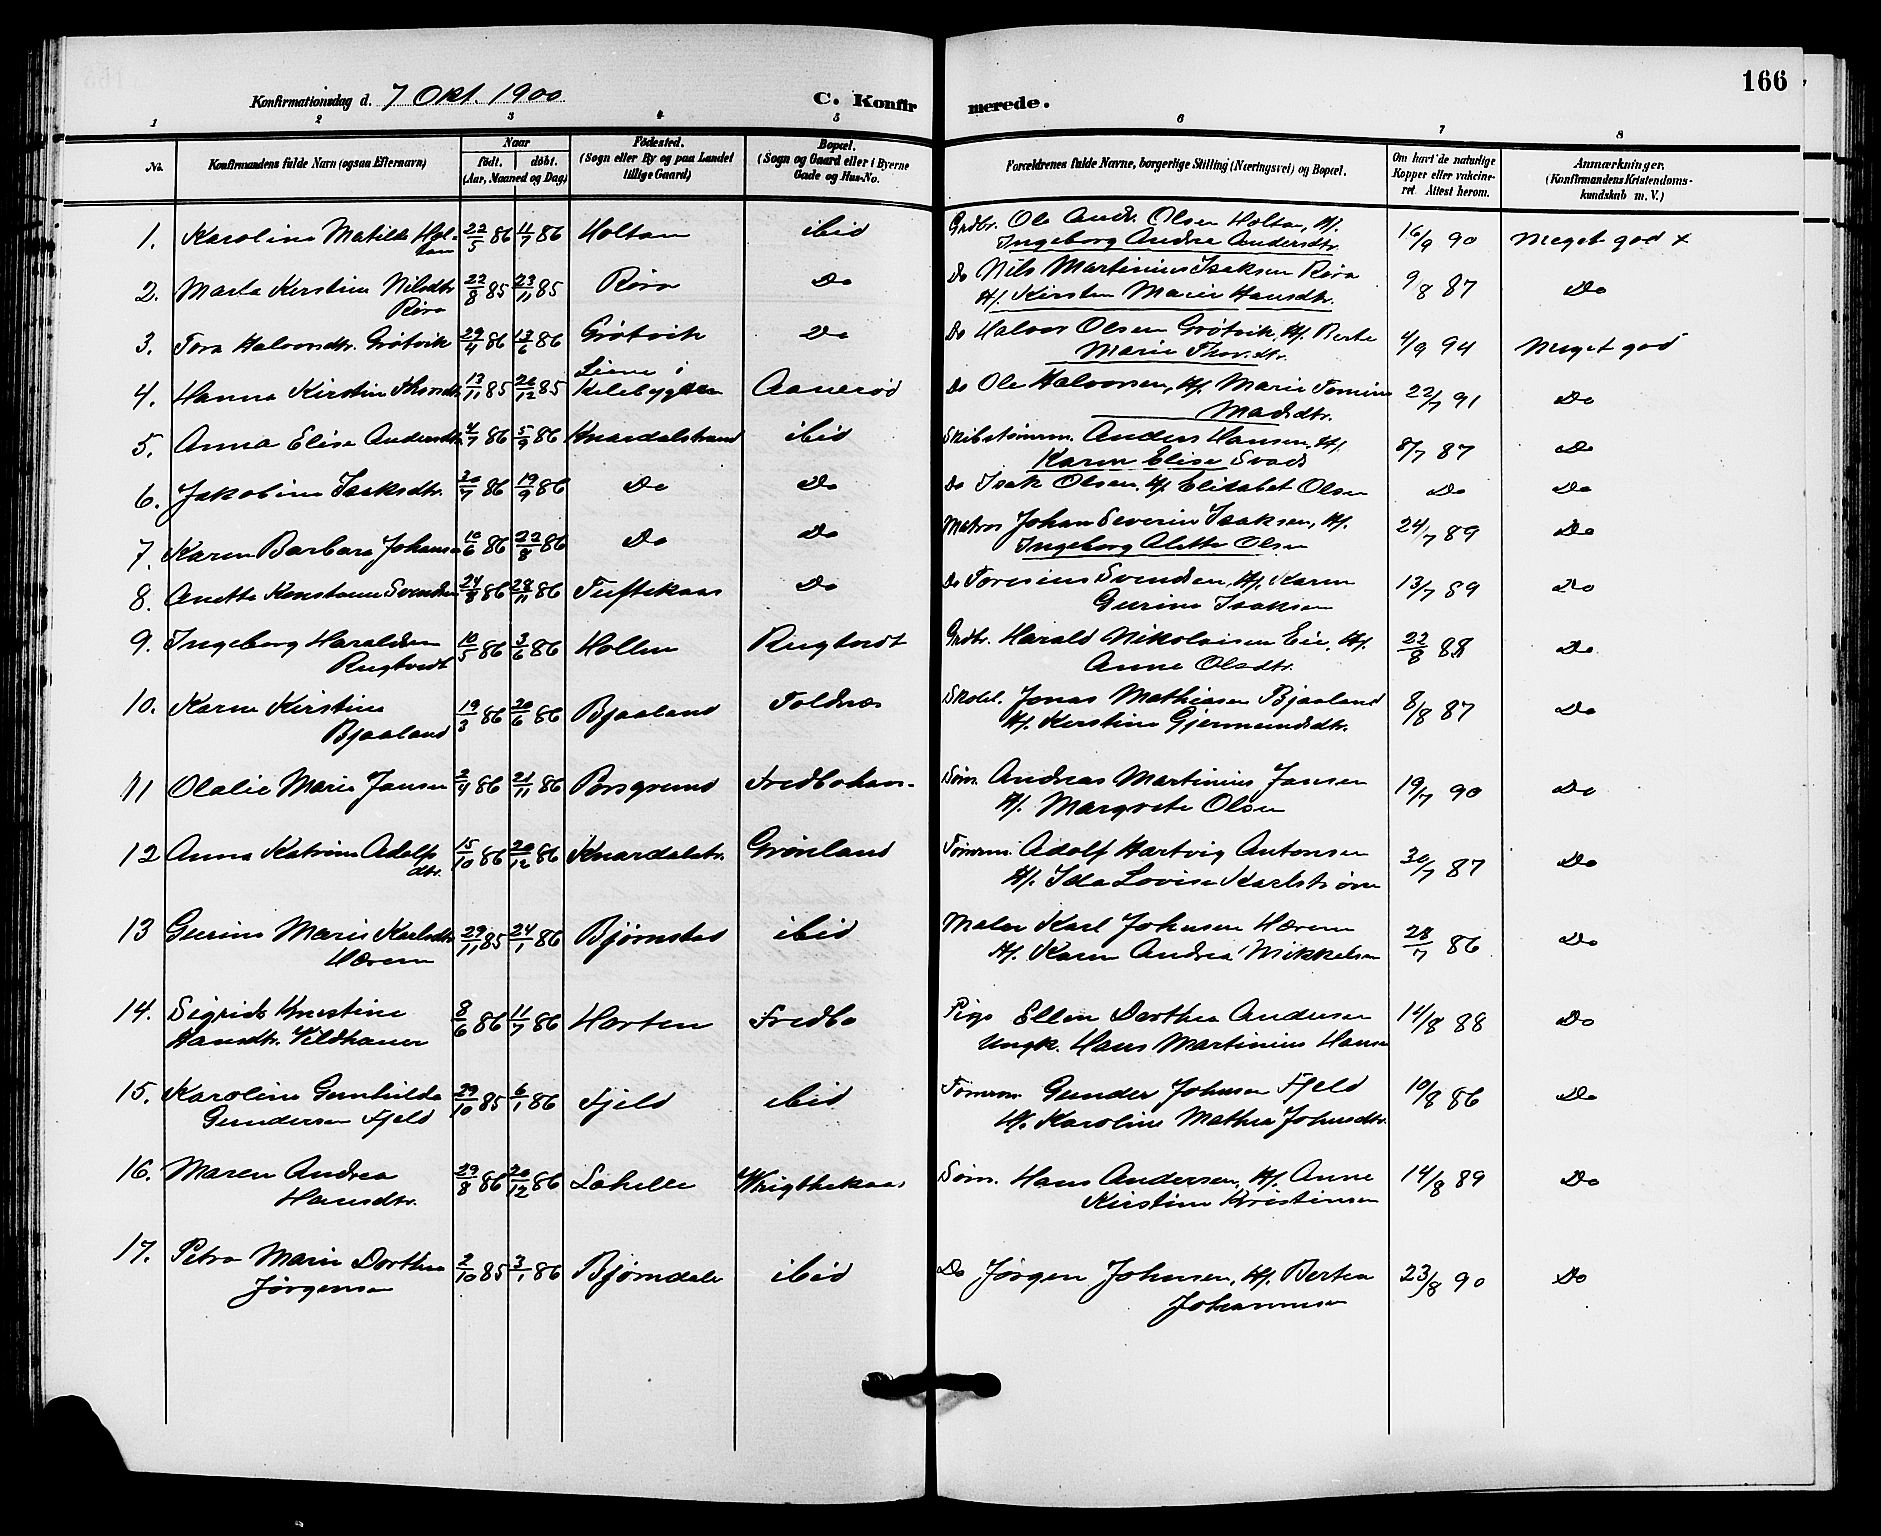 166
Konfirmationsdag d. 7 Okt. 1900
C. Konfirmerede.
1 2 3 4 5 6 7 8
No. Konfirmandens fulde Navn (ogsaa Efternavn) Naar født. døbt. (Aar, Maaned og Dag) Fødested. (Sogn eller By og paa Landet tillige Gaard) Bopæl. (Sogn og Gaard eller i Byerne Gade og Hus-No. Forældrenes fulde Navne, borgerlige Stilling (Næringsvei) og Bopæl. Om havt de naturlige Kopper eller vakcineret Attest herom. Anmærkninger. (Konfirmandens Kristendomskundskab m. V.)
1. Karoline Matilde Holtan 22/5 86 11/7 86 Holtan ibid Grdbr. Ole Andr. Olsen Holtan, H/. 16/9 90 Meget god x
Ingeborg Andrea Andersdtr.
2. Marta Kirstine Nilsdtr. 22/8 85 23/11 85 Røra Do Do Nils Martinius Isaksen Røra 9/8 87 Do
Røra H/. Kirsten Marie Hansdtr.
3. Tora Halvorsdtr. Grøtvik 29/4 86 13/6 86 Grøtvik Do Do Halvor Olsen Grøtvik, H/. Berte 4/9 94 Meget god
Marie Thorsdtr.
4. Hanna Kirstine 13/11 85 20/12 85 Liene i Kilebygden Aanerød Do Ole Halvorsen, H/. Marie Tomine 22/7 91 Do
Madsdtr.
5. Anna Elise Andersdtr. 4/7 86 5/9 86 Knardalstrand ibid Skibstømrm. Anders Hansen, H/. 8/7 87 Do
Karen Elise
6. Jakobine Isaksdtr. 20/7 86 19/9 86 Do Do Do Isak Olsen, H/. Elisabet Olsen Do Do
7. Karen Barbara Johansen 10/6 86 22/8 86 Do Do Matros Johan Severin Isaksen, H/. 24/7 89 Do
Ingeborg Alette Olsen
8. Anette Konstanse Svendsen 24/8 86 28/11 86 Tuftekaas Do Do Toresius Svendsen, H/. Karen 13/7 89 Do
Gurine Isaksen
9. Ingeborg Haraldsen 10/5 86 3/6 86 Hollen Rugtvedt Grdbr. Harald Nikolaisen Eie, H/. 22/8 88 Do
Rugtvedt Anne Olsdtr.
10. Karen Kirstine 19/3 86 20/6 86 Bjaaland Toldnæs Skolel. Jonas Mathiasen Bjaaland 8/8 87 Do
Bjaaland H/. Kirstine Gjermundsdtr.
11 Olalie Marie Jansen 2/4 86 21/11 86 Porsgrund Fredbohavn. Søm. Andreas Martinius Jansen 19/7 90 Do
H/. Margrete Olsen
12 Anna Katrine Adolfsdtr. 15/10 86 20/12 86 Knardalstr. Grønland Tømrm. Adolf Hartvig Antonsen 30/7 87 Do
H/. Ida Lovise Karlstrøm
13 Gurine Marie Karlsdtr. 29/11 85 24/1 86 Bjørnstad ibid Maler Karl Johnsen Hærem 28/7 86 Do
Hærem H/. Karen Andrea Mikkelsen
14. Sigrid Kristine 8/6 86 11/7 86 Horten Fredbo Pige Ellen Dorthea Andersen 14/8 88 Do
Hansdtr. Vildhauer Ungk. Hans Martinius Hansen
15. Karoline Gunhilda 29/10 85 6/1 86 Fjeld ibid Tømrm. Gunder Johnsen Fjeld 10/8 86 Do
Gundersen Fjeld H/. Karoline Mathea Johnsdtr.
16. Maren Andrea 29/8 86 20/12 86 Lahelle Wrigthekaas Søm. Hans Andersen, H/. Anne 14/8 89 Do
Hansdtr. Kirstine Kristensen
17. Petra Marie Dorthea 2/10 85 3/1 86 Bjørndalen ibid Do Jørgen Johnsen, H/. Berthea 23/8 90 Do
Jørgensen Johannesen